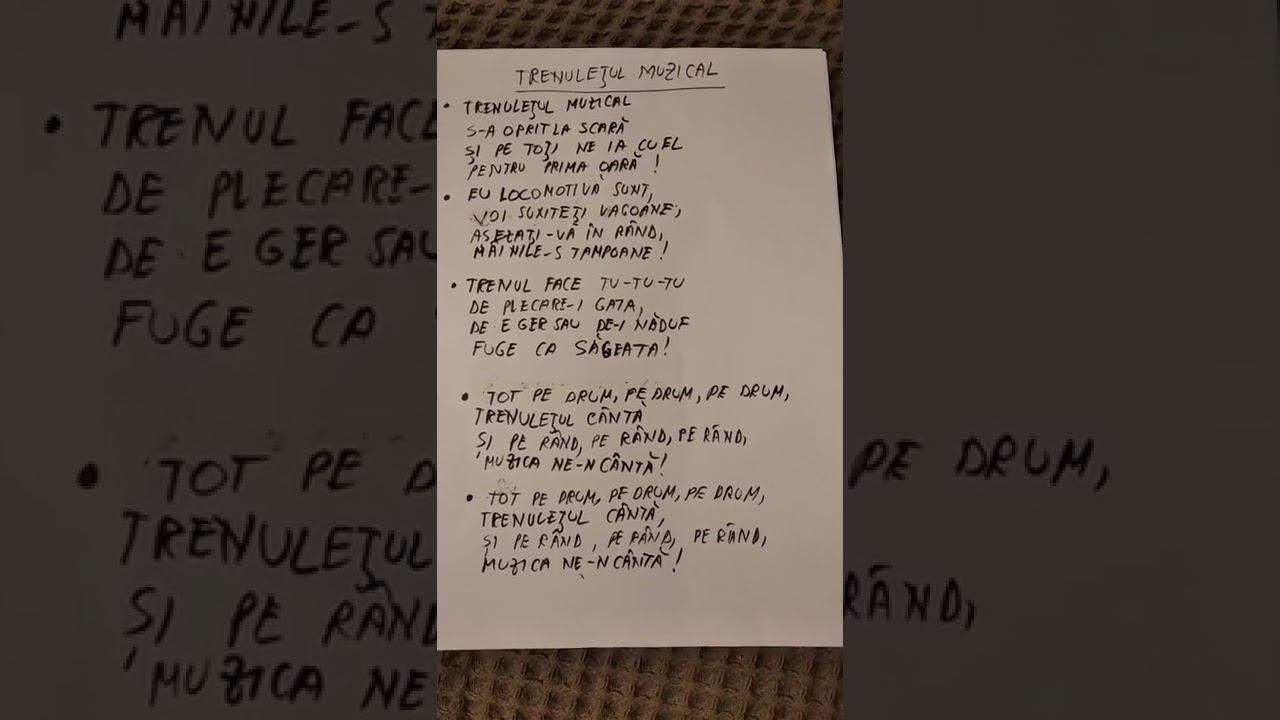 TRENULEŢUL MUZICAL
• TRENULEŢUL MUZICAL
S-A OPRIT LA SCARĂ
ŞI PE TOŢI NE IA CU EL
PENTRU PRIMA OARĂ !
• EU LOCOMOTIVĂ SUNT,
VOI SUNTEŢI VAGOANE,
AŞEZAŢI-VĂ ÎN RÂND,
MÂINILE-S TAMPOANE !
• TRENUL FACE TU-TU-TU
DE PLECARE-I GATA,
DE E GER SAU DE-I NĂDUF
FUGE CA SĂGEATA!
• TOT PE DRUM, PE DRUM, PE DRUM,
TRENULEŢUL CÂNTĂ
ŞI PE RÂND, PE RÂND, PE RÂND,
MUZICA NE-NCÂNTĂ!
• TOT PE DRUM, PE DRUM, PE DRUM,
TRENULEŢUL CÂNTĂ,
ŞI PE RÂND, PE RÂND, PE RÂND,
MUZICA NE-NCÂNTĂ!